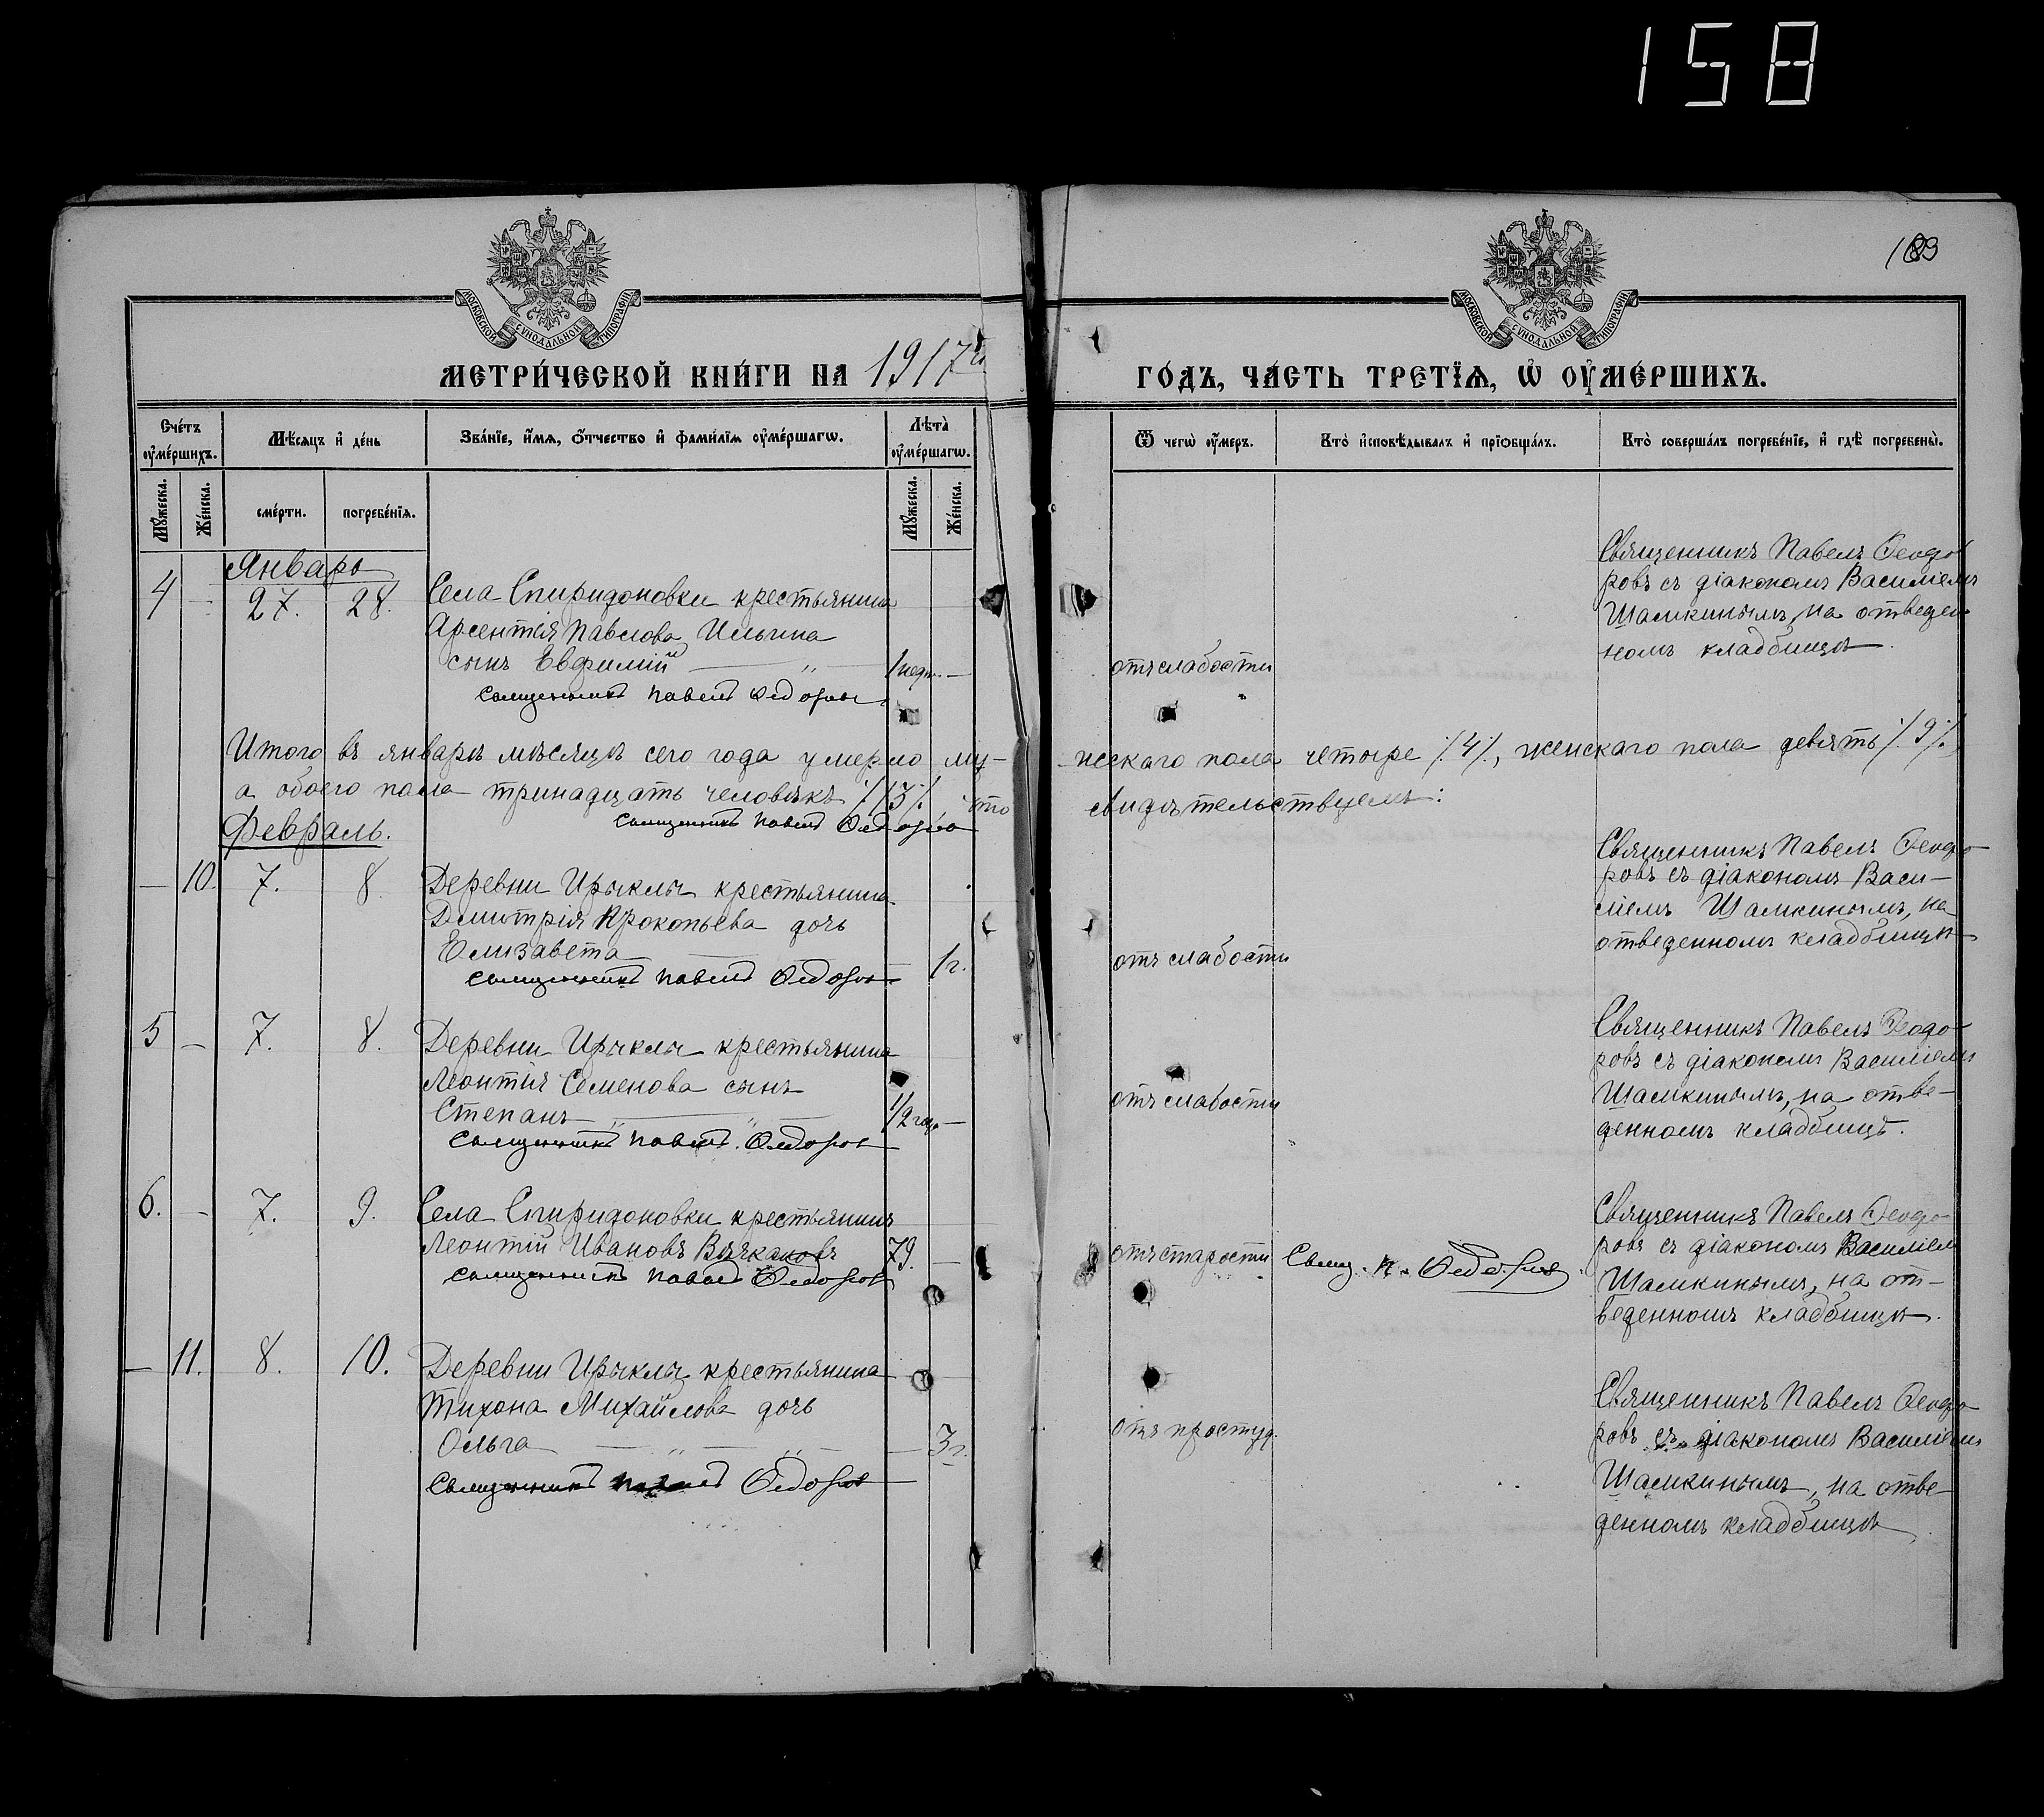 158
183
МОСКОВСКОЙ СѴНОДАЛЬНОЙ ТИПОГРАФІИ
МОСКОВСКОЙ СѴНОДАЛЬНОЙ ТИПОГРАФІИ
МЕТРИ́ЧЕСКОЙ КНИ́ГИ НА 1917й
ГО́ДЪ, ЧА́СТЬ ТРЕ́ТЇѦ, Ѡ ОУ҆МЕ́РШИХЪ.
Сче́тъ оу҆ме́ршихъ.
Мѣ́сяцъ и҆ де́нь
Зва́нїе, и҆́мѧ, ѻ҆́тчество и҆ фами́лїѧ оу҆ме́ршагѡ.
Лѣта̀ оу҆ме́ршагѡ.
Ѿ чегѡ̀ оу҆́меръ.
Кто̀ и҆сповѣ́дывалъ и҆ прїѡбща́лъ.
Кто̀ соверша́лъ погребе́нїе, и҆ гдѣ̀ погребены̀.
Мꙋ́жеска.
Же́нска.
сме́рти.
погребе́нїѧ.
Мꙋ́жеска.
Же́нска.
Январь
4 — 27. 28. Села Спиридоновки крестьянина
Арсентія Павлова Ильина
сынъ Евфимій — „ — 1 нед. —
Священникъ Павелъ Ѳедоровъ
отъ слабости
Священникъ Павелъ Ѳеодо
ровъ съ діакономъ Василіемъ
Шамкинымъ, на отведен
номъ кладбищѣ.
Итого въ январѣ мѣсяцѣ сего года умерло му-
жескаго пола четыре /4/, женскаго пола девять /9/,
а обоего пола тринадцать человѣкъ /13/, что
свидѣтельствуемъ:
Священникъ Павелъ Ѳедоровъ
Февраль.
— 10. 7. 8. Деревни Ирыклы крестьянина
Дмитрія Прокопьева дочь
Елизавета — — — 1 г.
Священникъ Павелъ Ѳедоровъ
отъ слабости
Священникъ Павелъ Ѳеодо-
ровъ съ діакономъ Васи-
ліемъ Шамкинымъ, на
отведенномъ кладбищѣ
5 — 7. 8. Деревни Ирыклы крестьянина
Леонтія Семенова сынъ
Степанъ — „ — „ — 1/2 года —
Священникъ Павелъ Ѳедоровъ
отъ слабости
Священникъ Павелъ Ѳеодо-
ровъ съ діакономъ Василіемъ
Шамкинымъ, на отве-
денномъ кладбищѣ.
6. — 7. 9. Села Спиридоновки крестьянинъ
Леонтій Ивановъ 79. —
Священникъ Павелъ Ѳедоровъ
отъ старости
Свящ. П. Ѳедоровъ
Священникъ Павелъ Ѳеодо-
ровъ съ діакономъ Василіем
Шамкинымъ, на от-
веденномъ кладбищѣ.
— 11. 8. 10. Деревни Ирыклы крестьянина
Тихона Михайлова дочь
Ольга — „ — „ — — 3 г.
Священникъ Павелъ Ѳедоровъ
отъ простуд.
Священникъ Павелъ Ѳеодо-
ровъ съ діакономъ Василіемъ
Шамкинымъ, на отве-
денномъ кладбищѣ